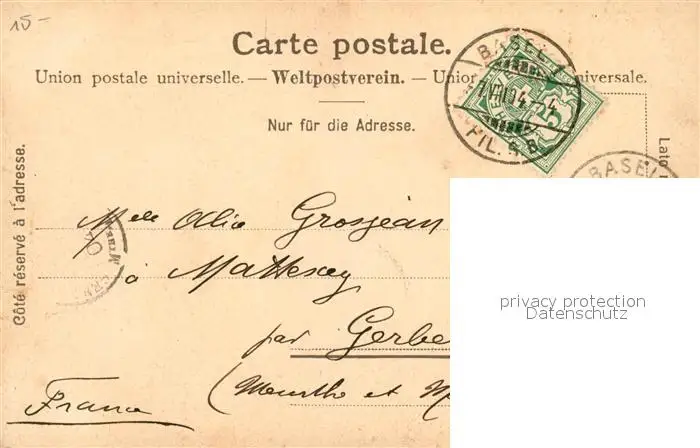 15-
Carte postale.
Union postale universelle. — Weltpostverein. — Union universale.
Nur für die Adresse.
Côté réservé à l'adresse.
Lato
BASEL
VII 04 - 4
FIL. S. B.
BASEL
Melle Grosjean
à
par Gerbe
(Meurthe et M
France
privacy protection
Datenschutz